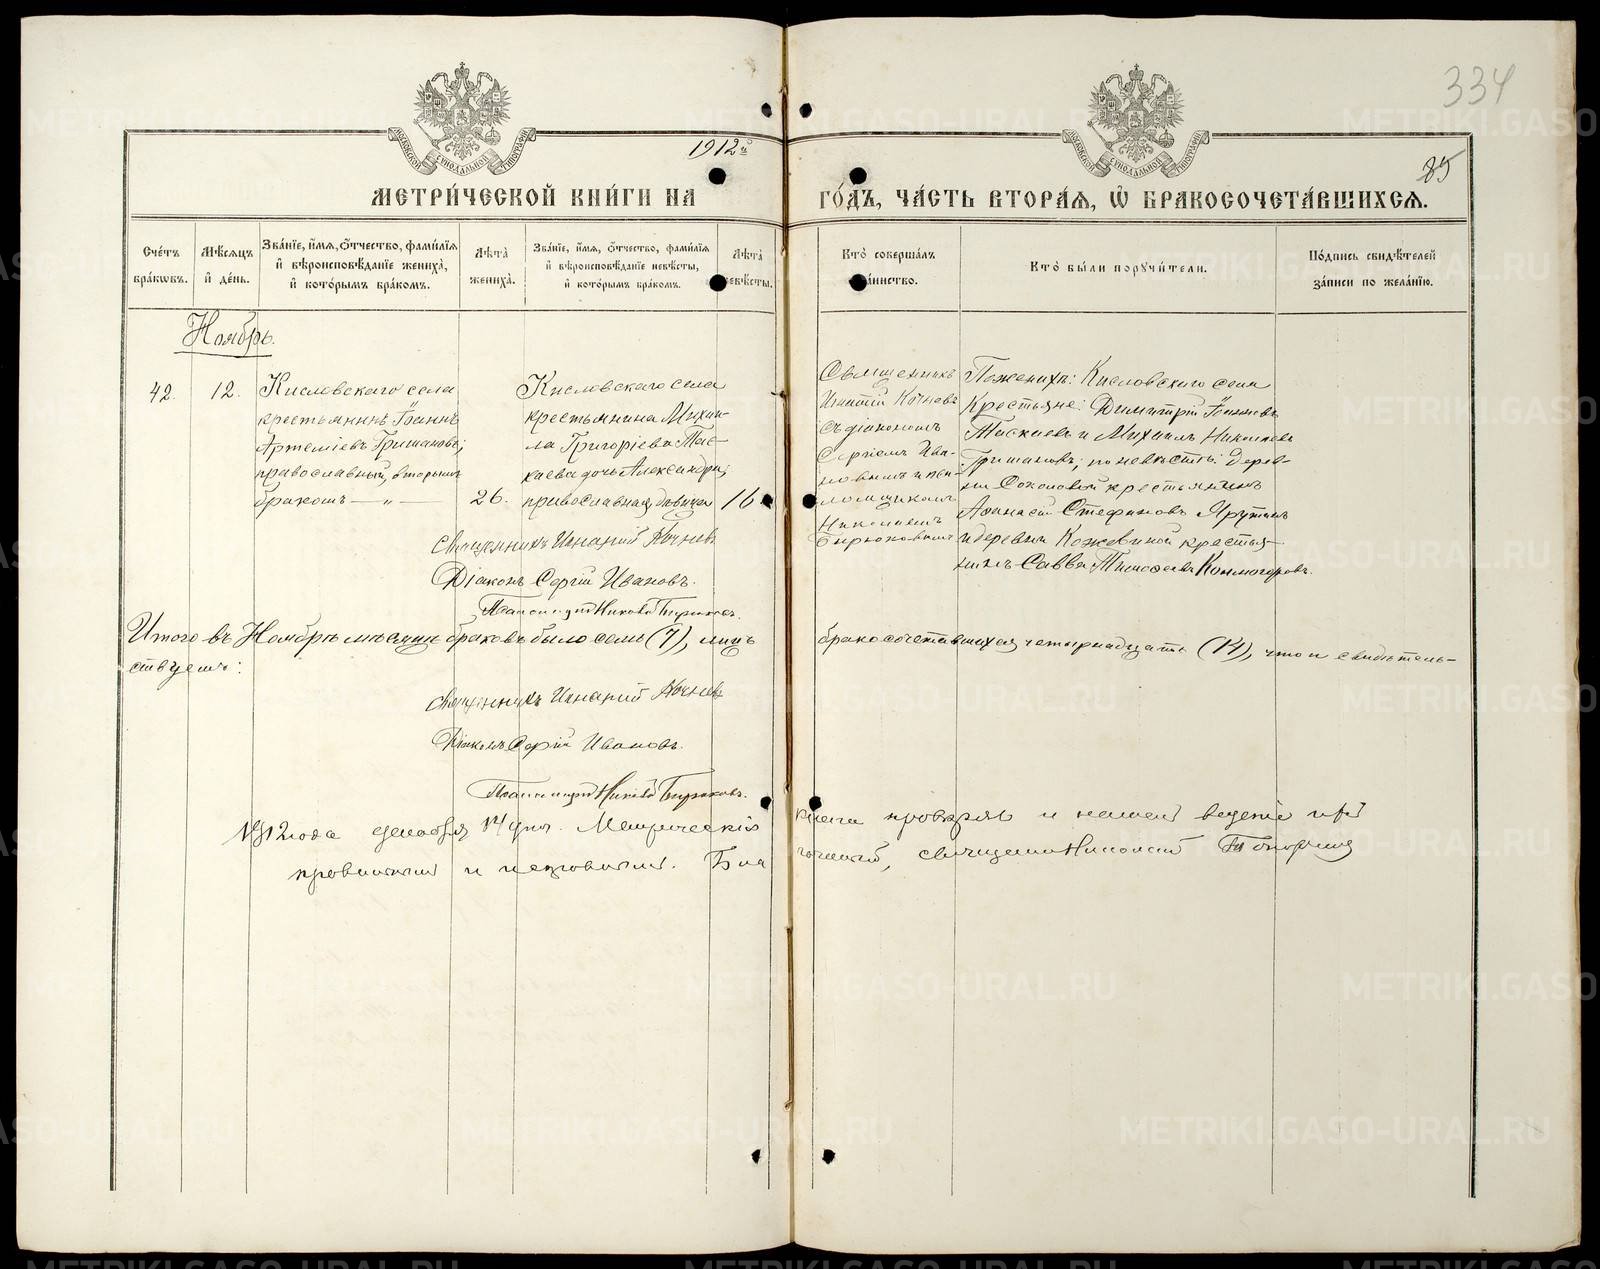 334
85
МОСКОВСКОЙ СУНОДАЛЬНОЙ ТИПОГРАФІИ
МОСКОВСКОЙ СУНОДАЛЬНОЙ ТИПОГРАФІИ
1912й
МЕТРИ́ЧЕСКОЙ КНИ́ГИ НА ГО́ДЪ, ЧА́СТЬ ВТОРА́Я, Ѡ҆ БРАКОСОЧЕТА́ВШИХСЯ.
Сче́тъ
бра́кѡвъ.
Мѣ́сяцъ
и҆ де́нь.
Зва́нїе, и҆́мя, ѻ҆́тчество, фами́лїя
и҆ вѣроисповѣ́данїе жениха̀,
и҆ кото́рымъ бра́комъ.
Лѣ́та̀
жениха̀.
Зва́нїе, и҆́мя, ѻ҆́тчество, фами́лїя
и҆ вѣроисповѣ́данїе невѣ́сты,
и҆ кото́рымъ бра́комъ.
Лѣ́та̀
невѣ́сты.
Кто̀ соверша́лъ
таинство.
Кто̀ бы́ли поручи́тели.
По́дпись свидѣ́телей
за́писи по жела́нїю.
Ноябрь.
42.
12.
Кисловскаго села
крестьянинъ Іоаннъ
Артеміевъ Гришановъ;
православный, вторымъ
бракомъ — „ —
26.
Кисловскаго села
крестьянина Михаи-
ла Григоріева Тас-
каева дочь Александра;
православная, девица
16
Священникъ
Игнатій Кочневъ
съ діакономъ
Сергіемъ Ива-
новымъ и пса-
ломщикомъ
Николаемъ
Бирюковымъ
По женихѣ: Кисловскаго села
Крестьяне: Димитрій Іоанновъ
Таскаевъ и Михаилъ Николаевъ
Гришановъ; по невѣстѣ: дерев-
ни Соколовой крестьянинъ
Аѳанасій Стефановъ Ярутинъ
и деревни Кожевиной крестья-
нинъ Савва Тимоѳеевъ Колмогоровъ.
Священникъ Игнатій Кочневъ
Діаконъ Сергій Ивановъ.
Псаломщикъ Николай Бирюковъ.
Итого въ Ноябрѣ мѣсяцѣ браковъ было семь (7), лицъ бракосочетавшихся четырнадцать (14), что и свидѣтель-
ствуемъ:
Священникъ Игнатій Кочневъ
Діаконъ Сергій Ивановъ.
Псаломщикъ Николай Бирюковъ.
1912 года декабря 14 дня. Метрическія книга провѣрялъ и нашелъ веденіе
правильнымъ и исправнымъ. священникъ Николай
METRIKI.GASO-URAL.RU